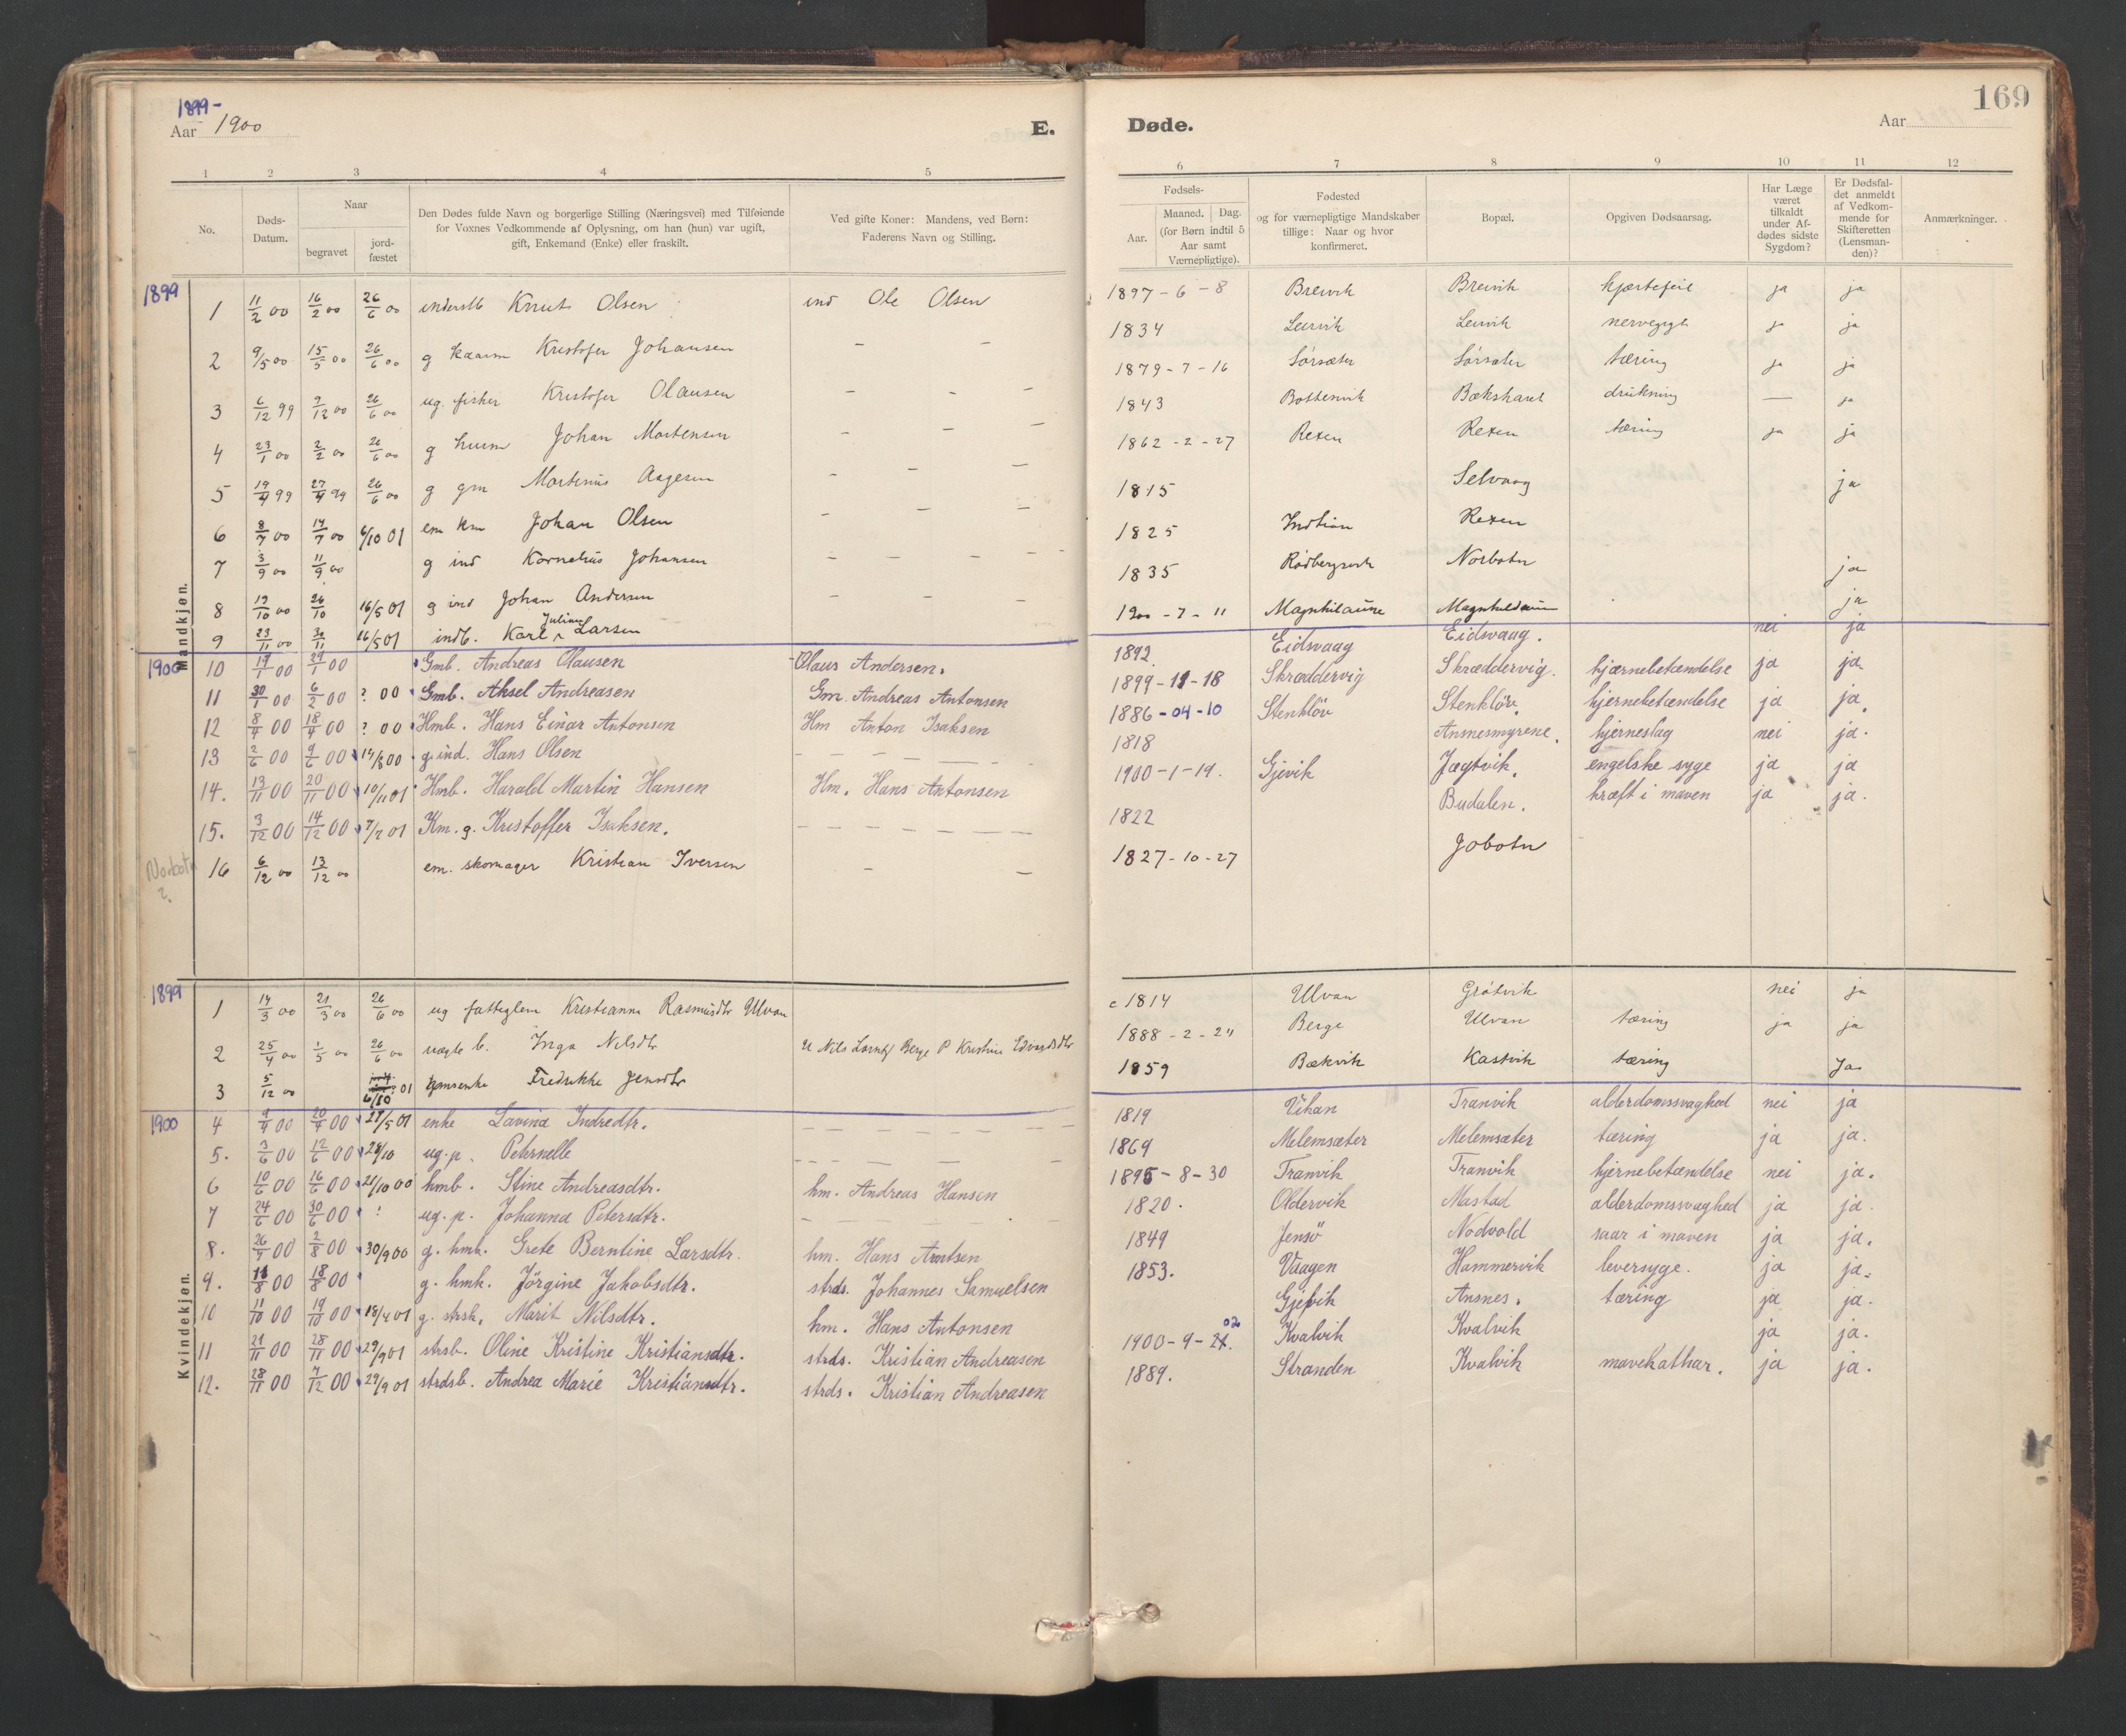 1899-
Aar 1900
E.
1 2 3 4 5
No.
Døds-
Datum.
Naar
begravet
jord-
fæstet
Den Dødes fulde Navn og borgerlige Stilling (Næringsvei) med Tilføiende
for Voxnes Vedkommende af Oplysning, om han (hun) var ugift,
gift, Enkemand (Enke) eller fraskilt.
Ved gifte Koner: Mandens, ved Børn:
Faderens Navn og Stilling.
Mandkjøn.
1899
1 11/2 00 16/2 00 26/6 00 Knut Olsen ind Ole Olsen
2 9/5 00 15/5 00 26/6 00 g kaarm Kristofer Johansen — —
3 6/12 99 9/12 00 26/6 00 ug. fisker Kristofer Olausen — — —
4 23/1 00 2/2 00 26/6 00 g husm Johan Mortensen — — —
5 19/4 99 27/4 99 26/6 00 g gm Martinus Aagesen — — —
6 8/7 00 14/7 00 6/10 01 em km Johan Olsen — — —
7 3/9 00 11/9 00 g ind Kornelius Johansen — — — —
8 19/10 00 26/10 16/5 01 g ind Johan Andersen — — —
9 23/11 00 30/11 16/5 01 indb. Karl Julian Larsen
1900
10 19/1 00 29/1 00 Gmb. Andreas Olausen Olaus Andersen.
11 30/1 00 6/2 00 ? 00 Gmb. Aksel Andreasen Gm. Andreas Antonsen
12 8/4 00 18/4 00 ? 00 Hmb. Hans Einar Antonsen Hm Anton Isaksen
13 2/6 00 9/6 00 14/8 00 g. ind. Hans Olsen — — — — —
14. 13/11 00 20/11 00 10/11 01 Hmb. Harald Martin Hansen Hm. Hans Antonsen
15. 3/12 00 14/12 00 7/2 01 Km. g. Kristoffer Isaksen. — — — — — —
Norbotn
?
16 6/12 00 13/12 00 em. skomager Kristian Iversen — —
Kvindekjøn.
1899
1 14/3 00 21/3 00 26/6 00 ug fattiglem Kristianna Rasmusdtr Ulvan
2 25/4 00 1/5 00 26/6 00 uægte b. Inga Nilsdtr U Nils Berge P Kristine Edvardsdtr
3 5/12 00 6/10 01 gmsenke Fredrikke Jensdtr
1900
4 9/4 00 20/4 00 27/5 01 enke Lavina Indredtr. — — — — — —
5. 3/6 00 12/6 00 28/10 ug. p. Pehrnelle — — — — —
6 10/6 00 16/6 00 21/10 00 hmb. Stine Andreasdtr. hm. Andreas Hansen
7 24/6 00 30/6 00 ? ug. p. Johanna Petersdtr. — — — — —
8. 26/7 00 2/8 00 30/9 00 g. hmk. Grete Berntine Larsdtr. hm. Hans Arntsen
9. 11/8 00 18/8 00 g. hmk. Jörgine Jakobsdtr. strds. Johannes Samuelsen
10 11/10 00 19/10 00 18/4 01 g. strsk. Marit Nilsdtr. hm. Hans Antonsen
11 21/11 00 28/11 00 29/9 01 strsb. Oline Kristine Kristiansdtr. strds. Kristian Andreasen
12. 28/11 00 7/12 00 29/9 01 strdsb. Andrea Marie Kristiansdtr. strds. Kristian Andreasen
169
Døde.
Aar
6 7 8 9 10 11 12
Fødsels-
Aar.
Maaned. Dag.
(for Børn indtil 5
Aar samt
Værnepligtige).
Fødested
og for værnepligtige Mandskaber
tillige: Naar og hvor
konfirmeret.
Bopæl.
Opgiven Dødsaarsag.
Har Læge
været
tilkaldt
under Af-
dødes sidste
Sygdom?
Er Dødsfal-
det anmeldt
af Vedkom-
mende for
Skifteretten
(Lensman-
den)?
Anmærkninger.
1897-6-8 Breivik Breivik hjærtefeil ja ja
1834 Leirvik Leirvik ja ja
1879-7-16 Sörsæter Sörsæter tæring ja ja
1843 Bottenvik Bækskaret drukning — ja
1862-2-27 Rexen Rexen tæring ja ja
1815 Selvaag ja
1825 Indtian Rexen
1835 Rödbergsvik Norbotn ja
1900-7-11 Magnhilaune Magnhildaune ja
1892. Eidsvaag Eidsvaag. nei ja
1899-11-18 Skræddervig Skræddervig. hjærnebetændelse ja ja
1886-04-10 Stenklöv Stenklöv. hjernebetændelse ja ja.
1818 Ansnesmyrene. hjerneslag nei ja.
1900-1-19. Gjevik Jægtvik. engelske syge ja ja
1822 Budalen. kræft i maven ja ja.
1827-10-27 Jobotn
c 1814 Ulvan Grötvik nei ja
1888-2-24 Berge Ulvan tæring ja ja
1859 Bækvik Kastvik tæring Ja
1819 Vihan Tranvik alderdomssvaghed nei ja
1869 Melemsæter Melemsæter tæring ja ja.
1895-8-30 Tranvik Tranvik hjernebetændelse nei ja.
1820. Oldervik Mastad alderdomssvaghed ja ja.
1849 Jensö Nodvold saar i maven ja ja.
1853. Vaagen Hammervik leversyge. ja ja.
Gjevik Ansnes. tæring ja ja.
02
1900-9-24. Kvalvik Kvalvik ja ja.
1889. Stranden Kvalvik mavekathar. ja ja.